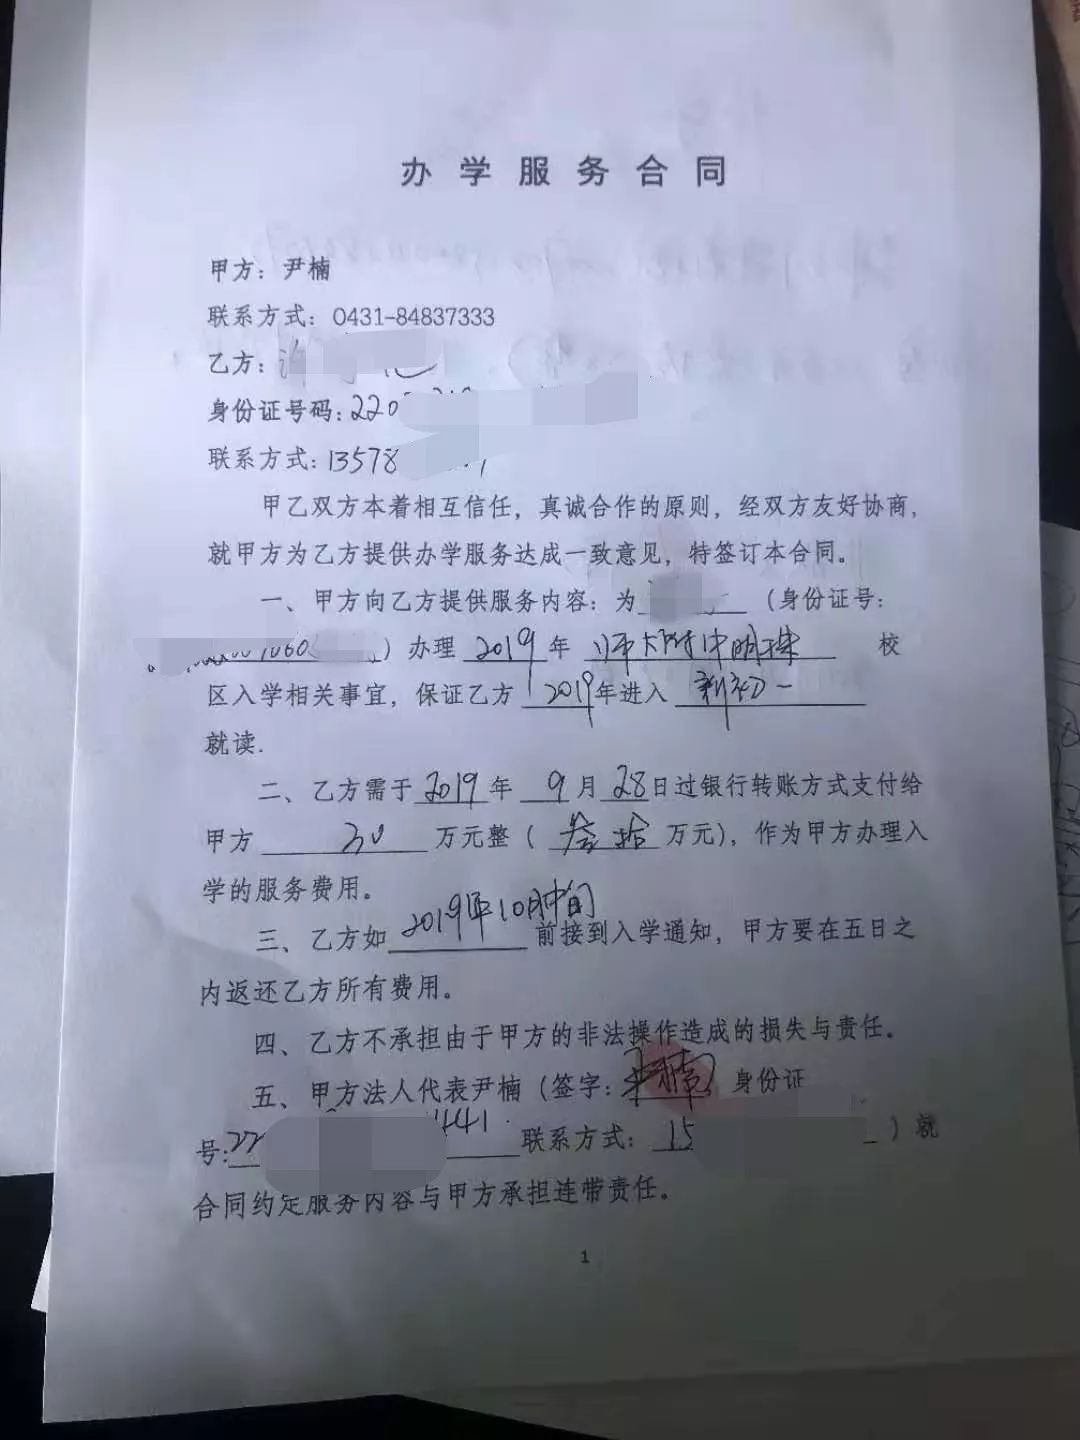 办学服务合同
甲方：尹楠
联系方式：0431-84837333
乙方：
身份证号码：220
联系方式：13578
甲乙双方本着相互信任，真诚合作的原则，经双方友好协商，
就甲方为乙方提供办学服务达成一致意见，特签订本合同。
一、甲方向乙方提供服务内容：为（身份证号：
）办理 2019 年 师大附中明珠 校
区入学相关事宜，保证乙方 2019 年进入 新初一
就读.
二、乙方需于 2019 年 9 月 28 日过银行转账方式支付给
甲方 30 万元整（ 叁拾 万元），作为甲方办理入
学的服务费用。
三、乙方如 2019年10月中旬 前接到入学通知，甲方要在五日之
内返还乙方所有费用。
四、乙方不承担由于甲方的非法操作造成的损失与责任。
五、甲方法人代表尹楠（签字：尹楠 身份证
号：22 441 联系方式：15 ）就
合同约定服务内容与甲方承担连带责任。
1